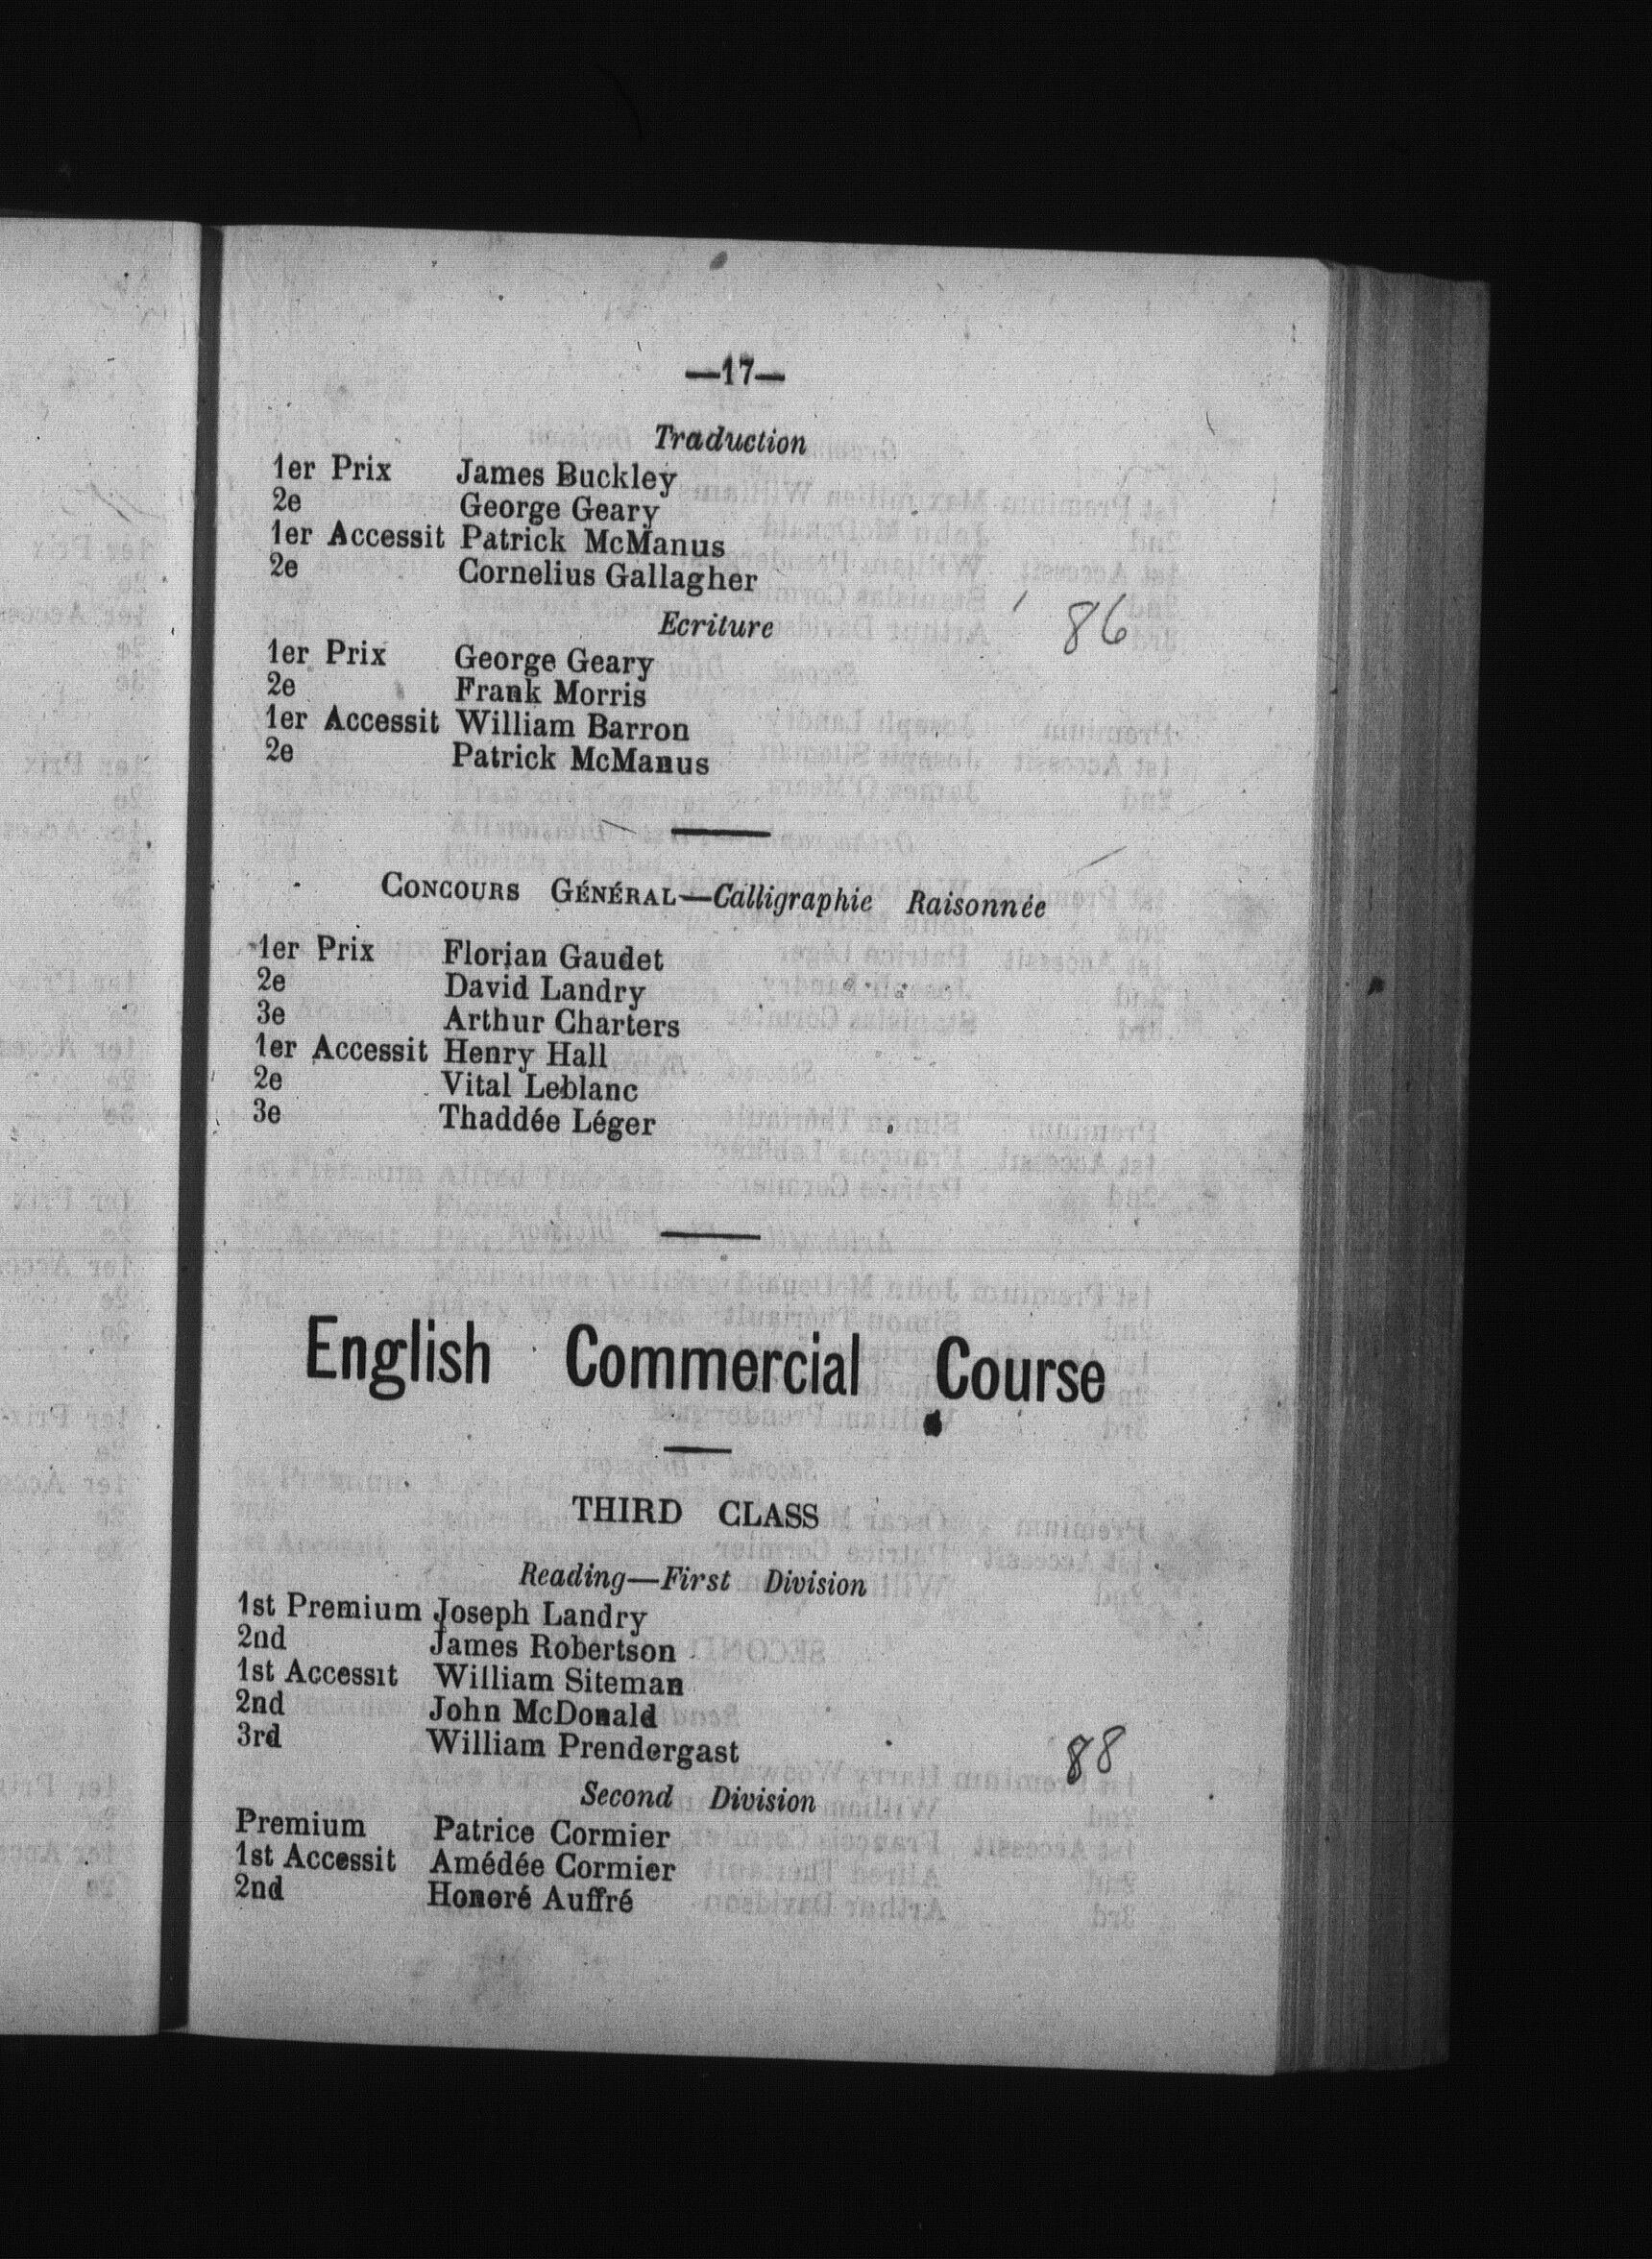 —17—
Traduction
1er Prix James Buckley
2e George Geary
1er Accessit Patrick McManus
2e Cornelius Gallagher
86
Ecriture
1er Prix George Geary
2e Frank Morris
1er Accessit William Barron
2e Patrick McManus
CONCOURS GÉNÉRAL—Calligraphie Raisonnée
1er Prix Florian Gaudet
2e David Landry
3e Arthur Charters
1er Accessit Henry Hall
2e Vital Leblanc
3e Thaddée Léger
English Commercial Course
THIRD CLASS
Reading—First Division
1st Premium Joseph Landry
2nd James Robertson
1st Accessit William Siteman
2nd John McDonald
3rd William Prendergast
88
Second Division
Premium Patrice Cormier
1st Accessit Amédée Cormier
2nd Honoré Auffré